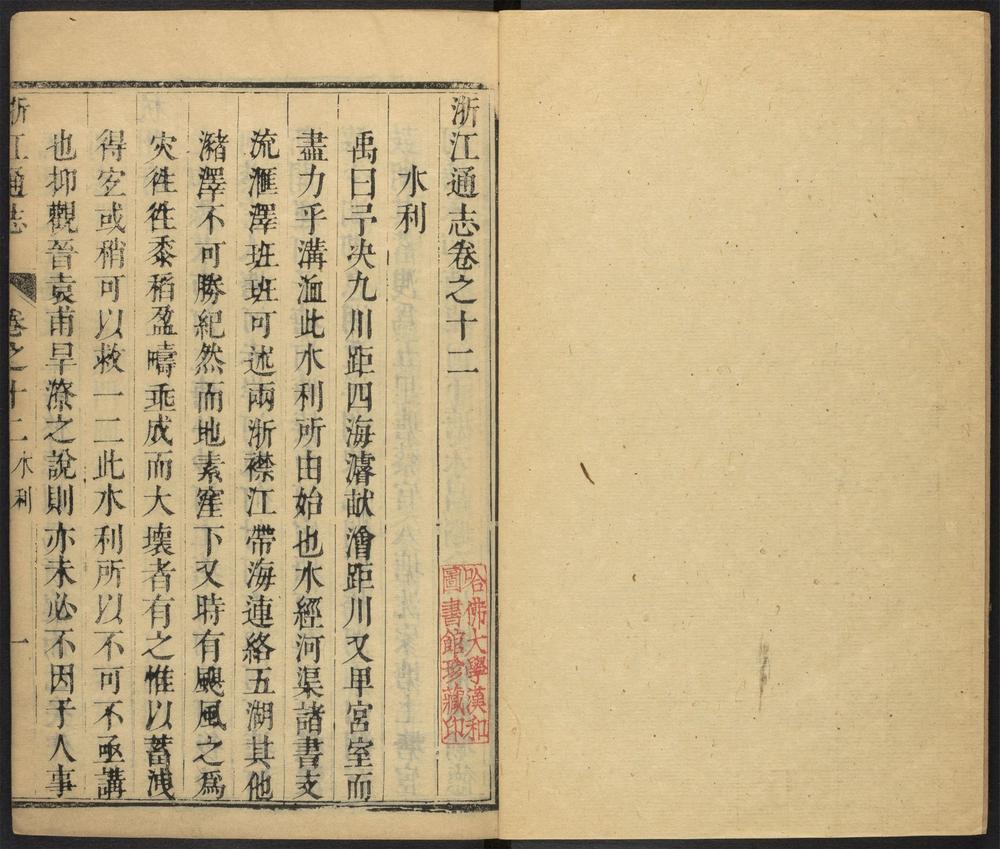 浙江通志卷之十二
水利
禹曰予决九川距四海濬畎澮距川又甲宮室而
盡力乎溝洫此水利所由始也水經河渠諸書支
流滙澤班班可述兩浙襟江帶海連絡五湖其他
瀦澤不可勝紀然而地素窪下又時有颶風之爲
灾徃徃黍稻盈疇垂成而大壞者有之惟以蓄洩
得宐或稍可以救一二此水利所以不可不亟講
也抑觀晉袁甫旱潦之說則亦未必不因乎人事
浙江通志 卷之十二 水利 一
哈佛大學漢和
圖書館珍藏印